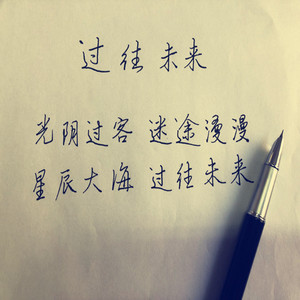 过往 未来
光阴过客 迷途漫漫
星辰大海 过往未来